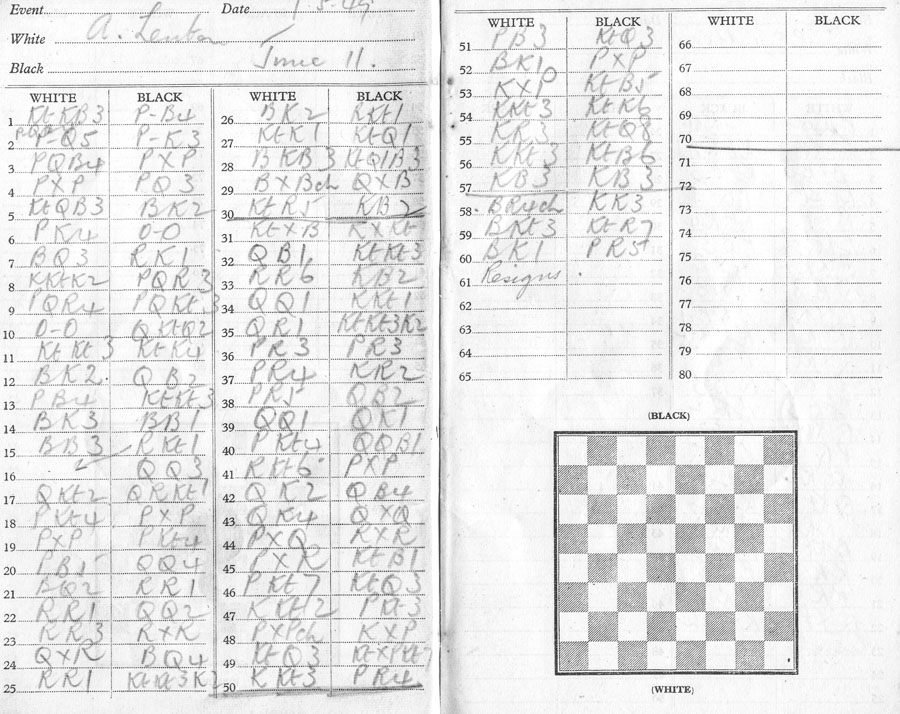 Event Date 1-5-49
White A. Lenton
Black Time 11.
WHITE BLACK
1 Kt KB3 P-B4
2 P-Q5 P-K3
3 PQB4 PXP
4 PXP PQ3
5 KtQB3 BK2
6 PK4 O-O
7 BQ3 RK1
8 KKtK2 PQR3
9 PQR4 PQKt3
10 O-O QKtQ2
11 Kt Kt3 KtK4
12 BK2 QB2
13 PB4 KtKt3
14 BK3 BB1
15 BB3 RKt1
16 QQ3
17 QKt2 QRKt1
18 PKt4 PXP
19 PXP PKt4
20 PB5 QQ4
21 BQ2 RR1
22 RR1 QQ2
23 KR3 RXR
24 QXR BQ4
25 RR1 KtKt3K2
WHITE BLACK
26 BK2 RKt1
27 KtK1 KtQ1
28 BKB3 KtQ1B3
29 BXBch QXB
30 KtR5 KB2
31 KtXB KXKt
32 QB1 KtKt3
33 RR6 KB2
34 QQ1 KKt1
35 QR1 KtKt3K2
36 PR3 PR3
37 PR4 KR2
38 PR5 QB2
39 QQ1 QK1
40 PKt4 QQB1
41 RKt6 PXP
42 QK2 QB4
43 QK4 QXQ
44 PXQ RXR
45 PXR KtB1
46 PKt7 KtQ3
47 KKt2 PKt3
48 PXPch KXP
49 KtQ3 KtXPKt7
50 KKt3 PR4
WHITE BLACK
51 PB3 KtQ3
52 BK1 PXP
53 KXP KtB5
54 KKt3 KtK6
55 KR3 KtQ8
56 KKt3 KtB6
57 KB3 KB3
58 BR4ch KK3
59 BKt3 KtR7
60 BK1 PR5
61 Resigns.
62
63
64
65
WHITE BLACK
66
67
68
69
70
71
72
73
74
75
76
77
78
79
80
(BLACK)
(WHITE)